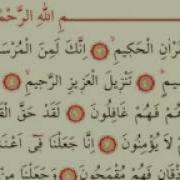 مِ اللَّهِ الرَّحْمَٰ
رْآنِ الْحَكِيمِ ۝ إِنَّكَ لَمِنَ الْمُرْسَ
تَنْزِيلَ الْعَزِيزِ الرَّحِيمِ
فَهُمْ غَافِلُونَ ۝ لَقَدْ حَقَّ الْقَ
لَا يُؤْمِنُونَ ۝ إِنَّا جَعَلْنَا فِي أَعْنَا
ذْقَانِ فَهُمْ مُقْمَحُونَ ۝ وَجَعَلْنَا مِنْ